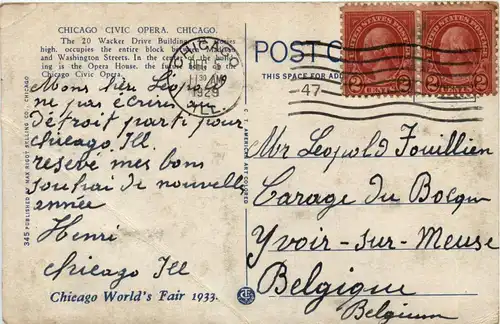 CHICAGO CIVIC OPERA. CHICAGO.
The 20 Wacker Drive Building
high, occupies the entire block between
and Washington Streets. In the center of the
ing is the Opera House, the future home of the
Chicago Civic Opera.
POST
THIS SPACE FOR
CHICAGO
30
1929
ILL.
47
UNITED STATES POSTAGE
2 CENTS 2
UNITED STATES POSTAGE
2 CENTS 2
Mons cher Léopold
ne pas écrire a
détroit parti pour
chicago, Ill.
resevé mes bons
souhai de nouvelle
année
Henri
Chicago Ill
Chicago World's Fair 1933.
345 PUBLISHED BY MAX RIGOT SELLING CO., CHICAGO
C. T. AMERICAN ART COLORED
Mr Leopold Fouillien
Garage du Bocq
Yvoir-sur-Meuse
Belgique
Belgium